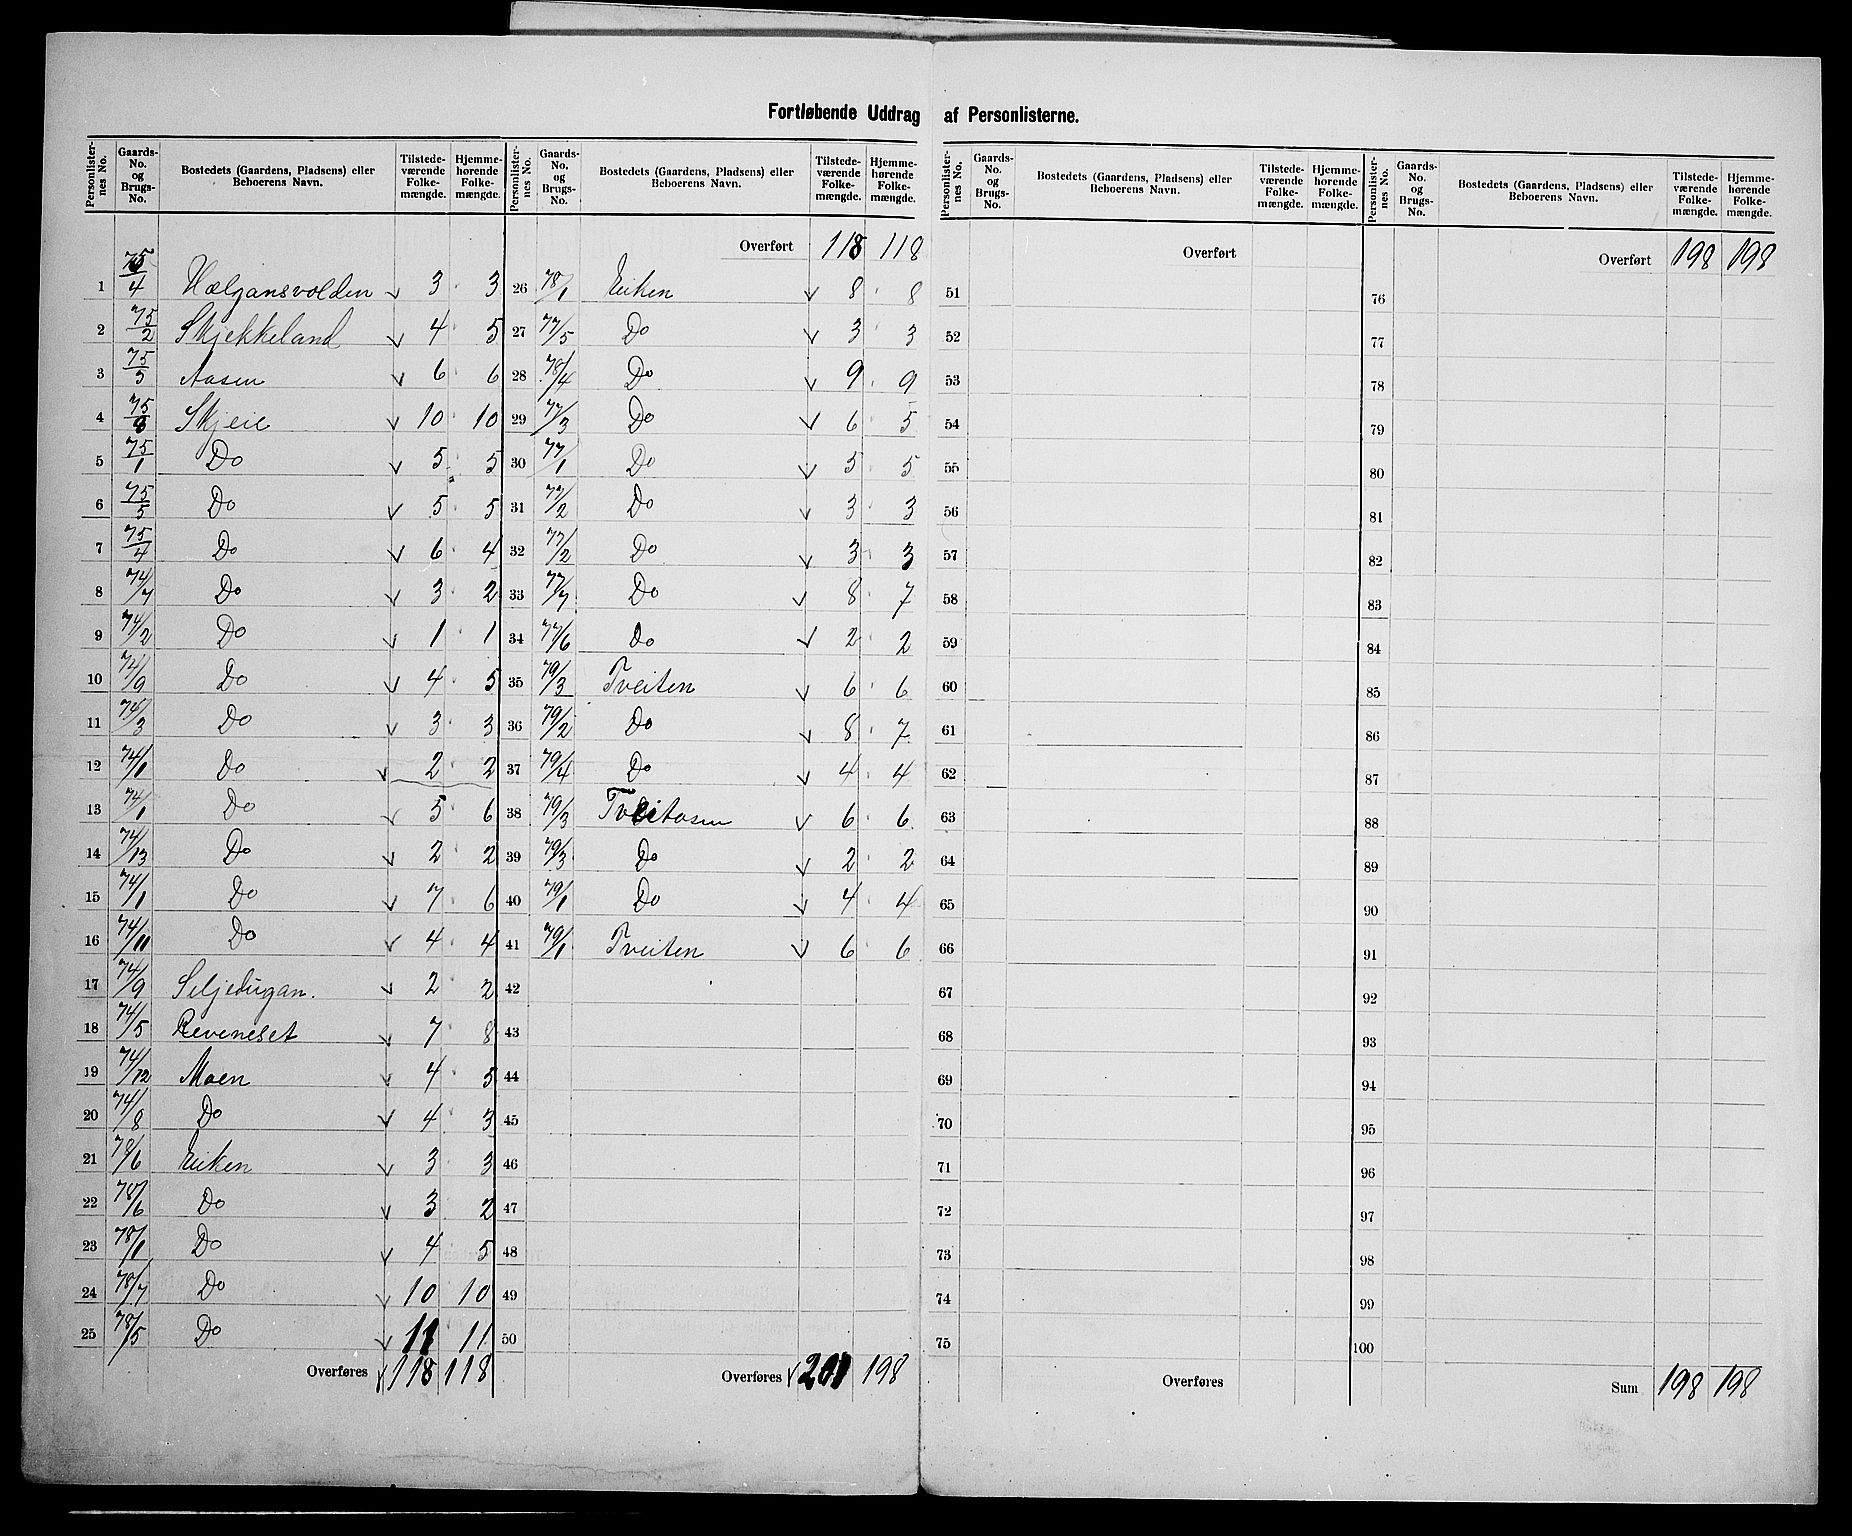 Fortløbende Uddrag af Personlisterne.
Personlisternes No. Gaards-No. og Brugs-No. Bostedets (Gaardens, Pladsens) eller Beboerens Navn. Tilstedeværende Folkemængde. Hjemmehørende Folkemængde.
1 75/4 Hælgansvolden 3 3
2 75/2 Skjekkeland 4 5
3 75/3 Aasen 6 6
4 75/6 Skjeie 10 10
5 75/1 Do 5 5
6 75/5 Do 5 5
7 75/4 Do 6 4
8 74/7 Do 3 2
9 74/2 Do 1 1
10 74/9 Do 4 5
11 74/3 Do 3 3
12 74/1 Do 2 2
13 74/1 Do 5 6
14 74/13 Do 2 2
15 74/1 Do 7 6
16 74/11 Do 4 4
17 74/9 Seljedugan. 2 2
18 74/5 Reveneset 7 8
19 74/12 Moen 4 5
20 74/8 Do 4 3
21 78/6 Eiken 3 3
22 78/6 Do 3 2
23 78/1 Do 4 5
24 78/7 Do 10 10
25 78/5 Do 11 11
Overføres 118 118
Personlisternes No. Gaards-No. og Brugs-No. Bostedets (Gaardens, Pladsens) eller Beboerens Navn. Tilstedeværende Folkemængde. Hjemmehørende Folkemængde.
Overført 118 118
26 78/1 Eiken 8 8
27 77/5 Do 3 3
28 78/4 Do 9 9
29 77/3 Do 6 5
30 77/1 Do 5 5
31 77/2 Do 3 3
32 77/2 Do 3 3
33 77/7 Do 8 7
34 77/6 Do 2 2
35 79/3 Tveiten 6 6
36 79/2 Do 8 7
37 79/4 Do 4 4
38 79/3 Tveitaasen 6 6
39 79/3 Do 2 2
40 79/1 Do 4 4
41 79/1 Tveiten 6 6
42
43
44
45
46
47
48
49
50
Overføres 201 198
Personlisternes No. Gaards-No. og Brugs-No. Bostedets (Gaardens, Pladsens) eller Beboerens Navn. Tilstedeværende Folkemængde. Hjemmehørende Folkemængde.
Overført
51
52
53
54
55
56
57
58
59
60
61
62
63
64
65
66
67
68
69
70
71
72
73
74
75
Overføres
Personlisternes No. Gaards-No. og Brugs-No. Bostedets (Gaardens, Pladsens) eller Beboerens Navn. Tilstedeværende Folkemængde. Hjemmehørende Folkemængde.
Overført 198 198
76
77
78
79
80
81
82
83
84
85
86
87
88
89
90
91
92
93
94
95
96
97
98
99
100
Sum 198 198